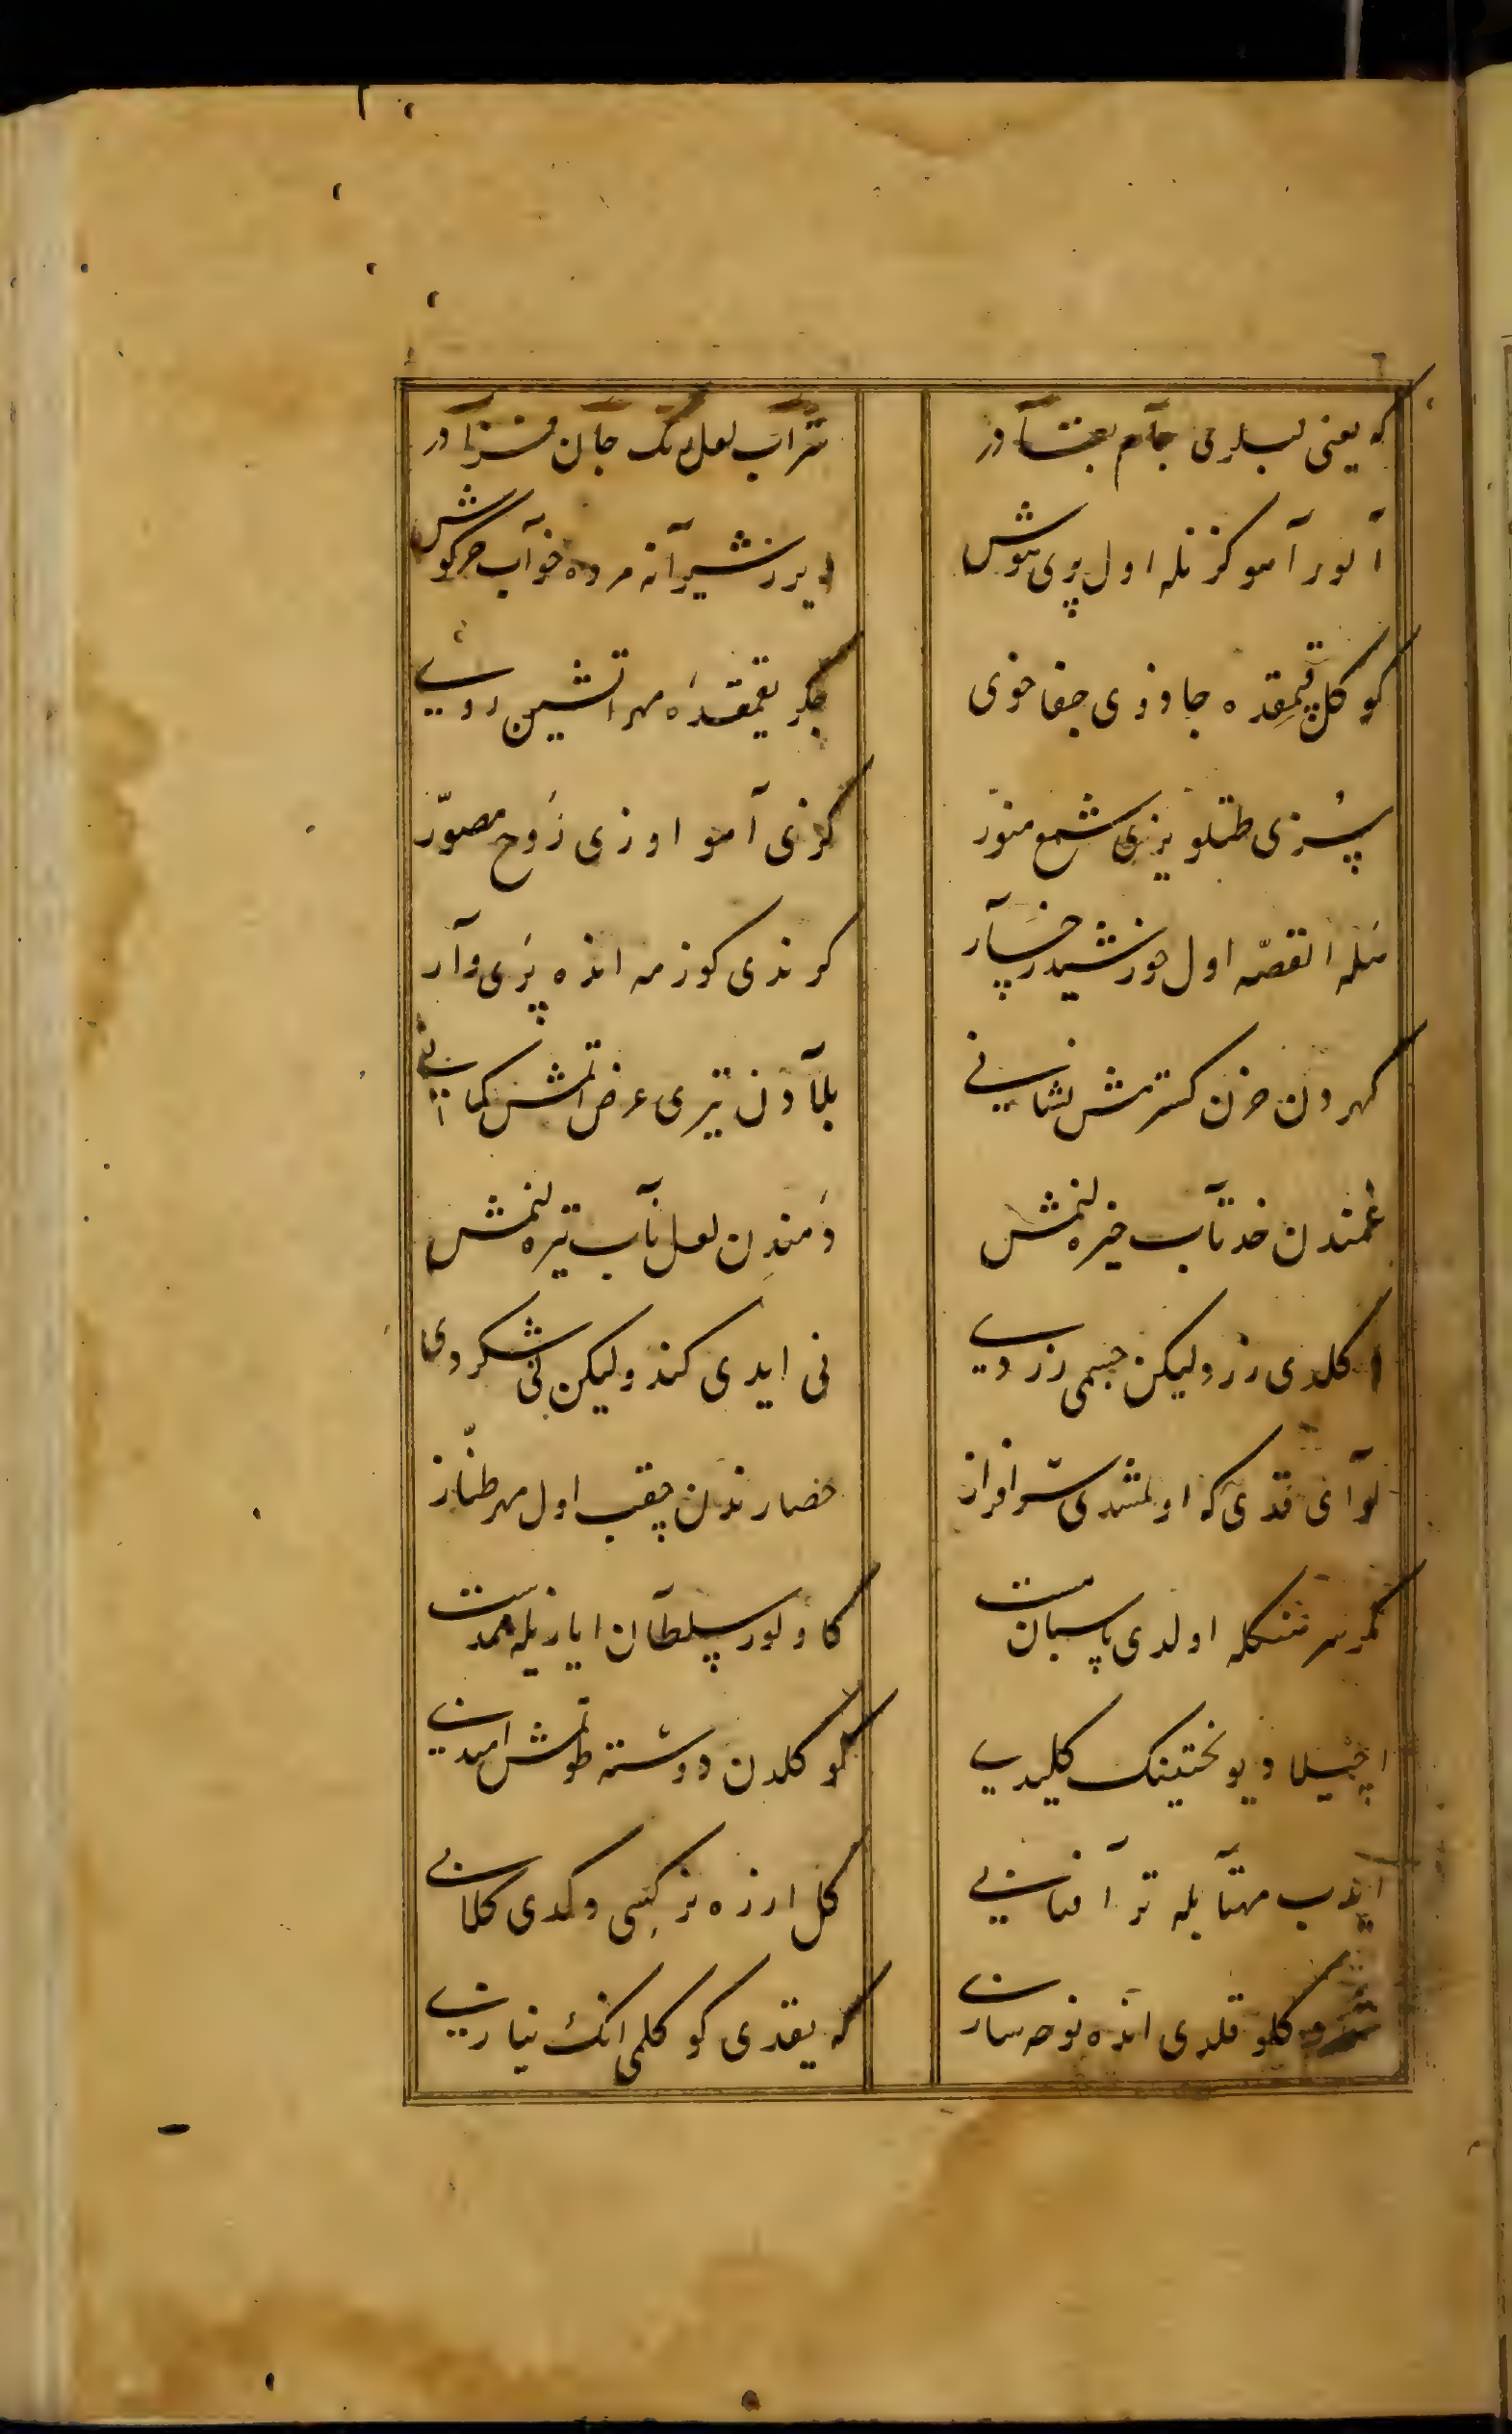 که یعنی لبلری جآم بقنآ در شرآب لعل تک جآن فزا در
آلور آهو کزنله اول پری هوش ویرر شیرآنه مرده خوآب خرکوش
کوکل یقمقده جاوزی جفا خوی جکر یقمقده مهر اتشین روی
سُزی طتلو یزی شمع منوّر کزی آهو اوزی رُوح مصوّر
مثله القصّه اول خورشید رخسار کرندی کوزمه انده پَری وآر
کهردن حزن کسترمش نشانی بلآدن تیری عرض اتمش کمانی
غمندن خد تآب خیره لنمش دَمندن لعل نآب تیره لنمش
کلدی زر ولیکن جسمی زردی نی ایدی کند ولیکن نی شکردی
لوآی قدی که اولمشدی سرافراز حصارندن چقب اول مهر طنّاز
مکر سرتنکله اولدی پاسبان مست کا ولور سلطان ایازیله همدست
اچیلا دیو بختینک کلیدی کوکلدن دوشته طوتمش امیدی
ایدب مهتآبله تر آفتابی کل ارزه نرکسی دکدی کلابی
کلو قلدی انده نوحه سازی که یقدی کوکلمی انک نیازی